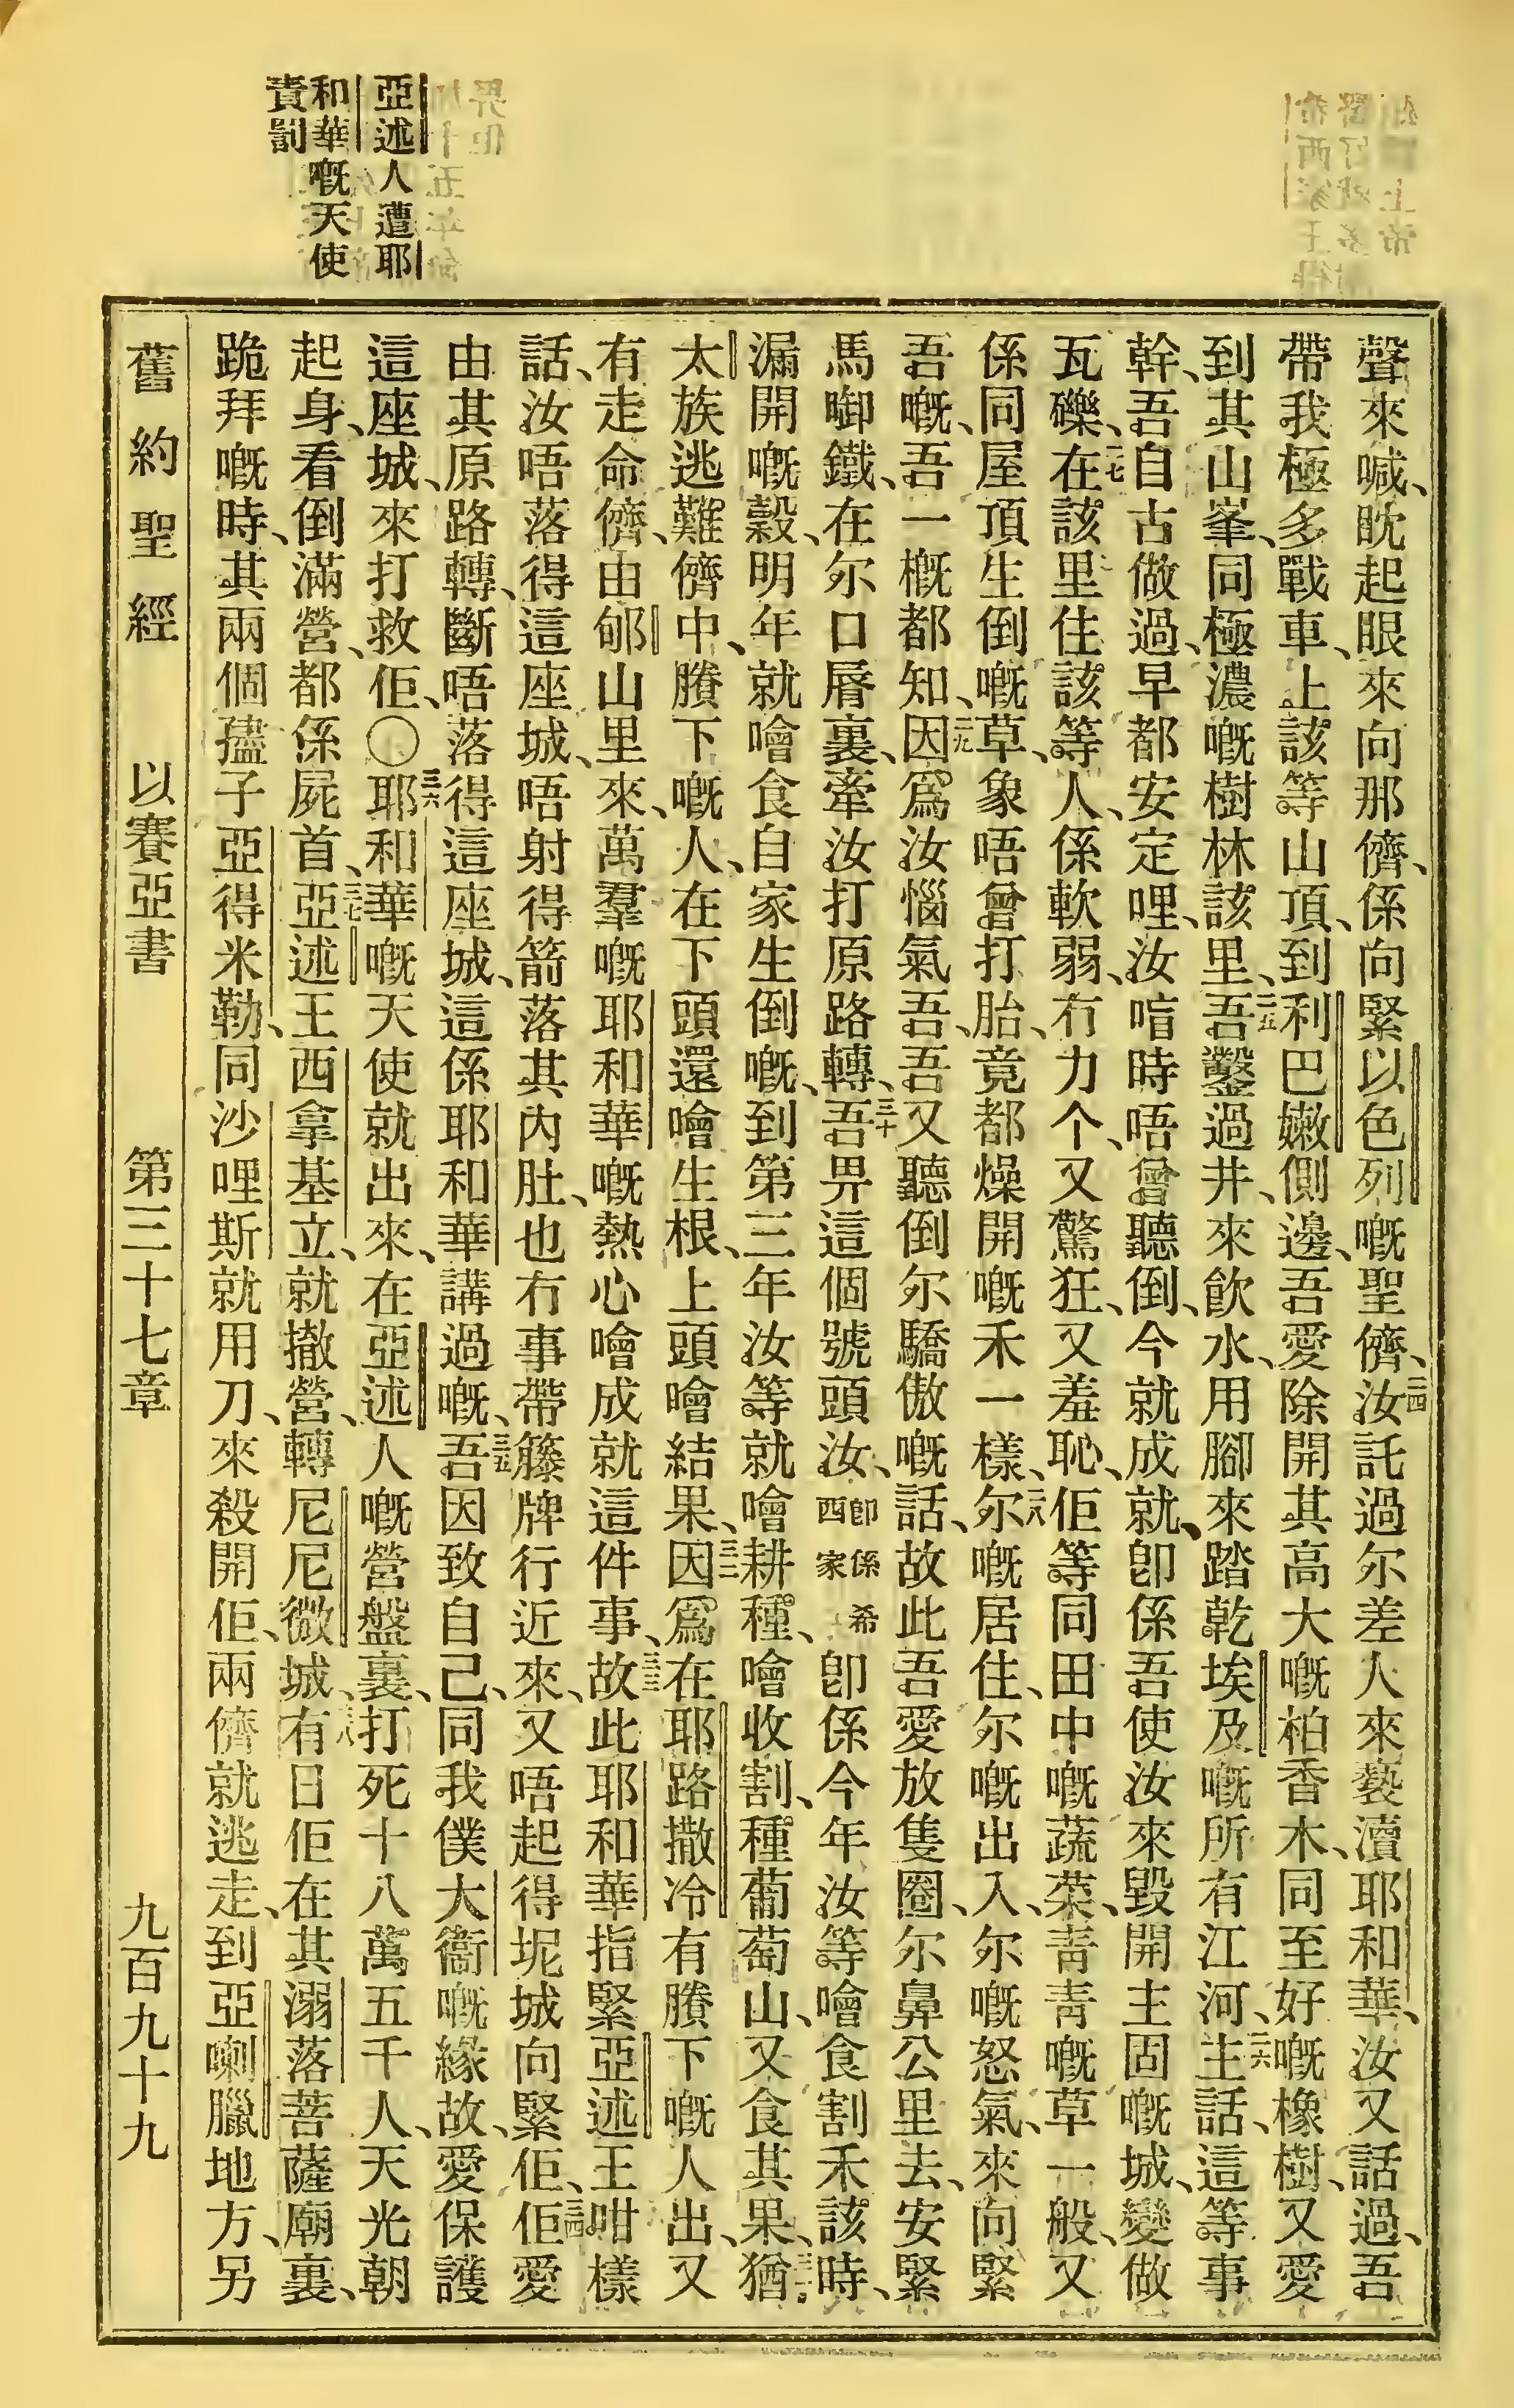 亞述人遭耶
和華嘅天使
責罰
聲來喊、眈起眼來向那儕、係向緊以色列嘅聖儕、二四汝託過尔差人來褻瀆耶和華、汝又話過、吾
帶我極多戰車、上該等山頂、到利巴嫩側邊、吾愛除開其高大嘅柏香木、同至好嘅橡樹、又愛
到其山峯、同極濃嘅樹林該里、二五吾鑿過井、來飲水、用腳來踏乾埃及嘅所有江河、二六主話、這等事
幹、吾自古做過、早都安定哩、汝喑時唔曾聽倒、今就成就、卽係吾使汝來毀開主固嘅城、變做
瓦礫、二七在該里住該等人、係軟弱、冇力个、又驚狂、又羞恥、佢等同田中嘅蔬菜、青青嘅草一般、又
係同屋頂生倒嘅草、象唔曾打胎、竟都燥開嘅禾一樣、二八尔嘅居住、尔嘅出入、尔嘅怒氣、來向緊
吾嘅、吾一概都知、二九因爲汝惱氣吾、吾又聽倒尔驕傲嘅話、故此吾愛放隻圈、尔鼻公里去、安緊
馬啣鐵、在尔口脣裏、牽汝打原路轉、三十吾畀這個號頭汝、卽係希西家卽係今年汝等噲食割禾該時、
漏開嘅穀、明年就噲食自家生倒嘅、到第三年汝等就噲耕種、噲收割、種葡萄山、又食其果、三一猶
太族逃難儕中、賸下嘅人、在下頭還噲生根、上頭噲結果、三二因爲在耶路撒冷有賸下嘅人出、又
有走命儕、由郇山里來、萬羣嘅耶和華嘅熱心噲成就這件事、三三故此耶和華指緊亞述王咁樣
話、汝唔落得這座城、唔射得箭落其內肚、也冇事帶籐牌行近來、又唔起得坭城向緊佢、三四佢愛
由其原路轉、斷唔落得這座城、這係耶和華講過嘅、三五吾因致自己、同我僕大衞嘅緣故、愛保護
這座城、來打救佢、〇三六耶和華嘅天使就出來、在亞述人嘅營盤裏、打死十八萬五千人、天光朝
起身、看倒滿營、都係屍首、三七亞述王西拿基立、就撤營、轉尼尼微城、三八有日佢在其溺落菩薩廟裏、
跪拜嘅時、其兩個孻子亞得米勒、同沙哩斯就用刀、來殺開佢、兩儕就逃走、到亞喇臘地方、另
舊約聖經 以賽亞書 第三十七章 九百九十九